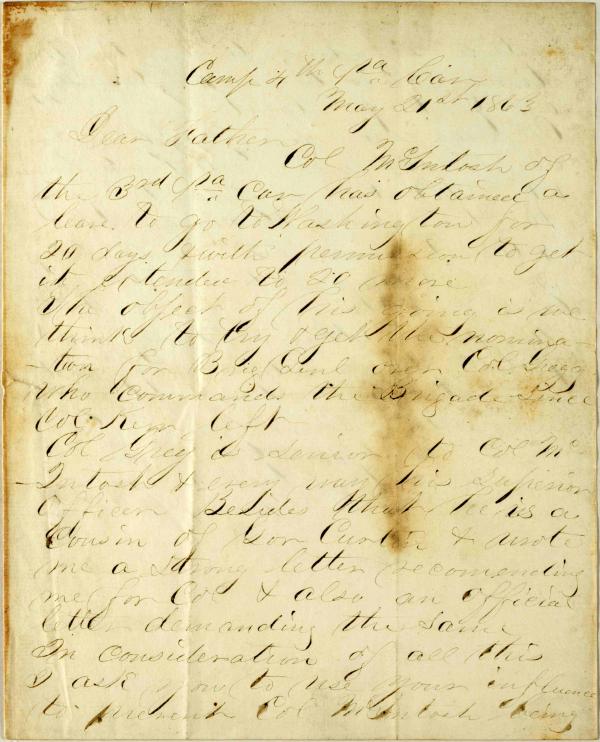 Camp 4th Pa Cav
May 21st 1863
Dear Father
Col McIntosh of
the 3rd Pa Cav has obtained a
leave to go to Washington for
20 days with permission to get
it extended to 20 more
The object of his going is we
think to try & get the nomina-
-tion for Brig Genl over Col Gregg
who commands the Brigade since
Col Kerr left
Col Greg is senior to Col Mc-
-Intosh & every way his superior
officer Besides that he is a
Cousin of Gov Curtin & wrote
me a strong letter recomending
me for Col & also an official
letter demanding the same
In consideration of all this
I ask you to use your influence
to prevent Col McIntosh being